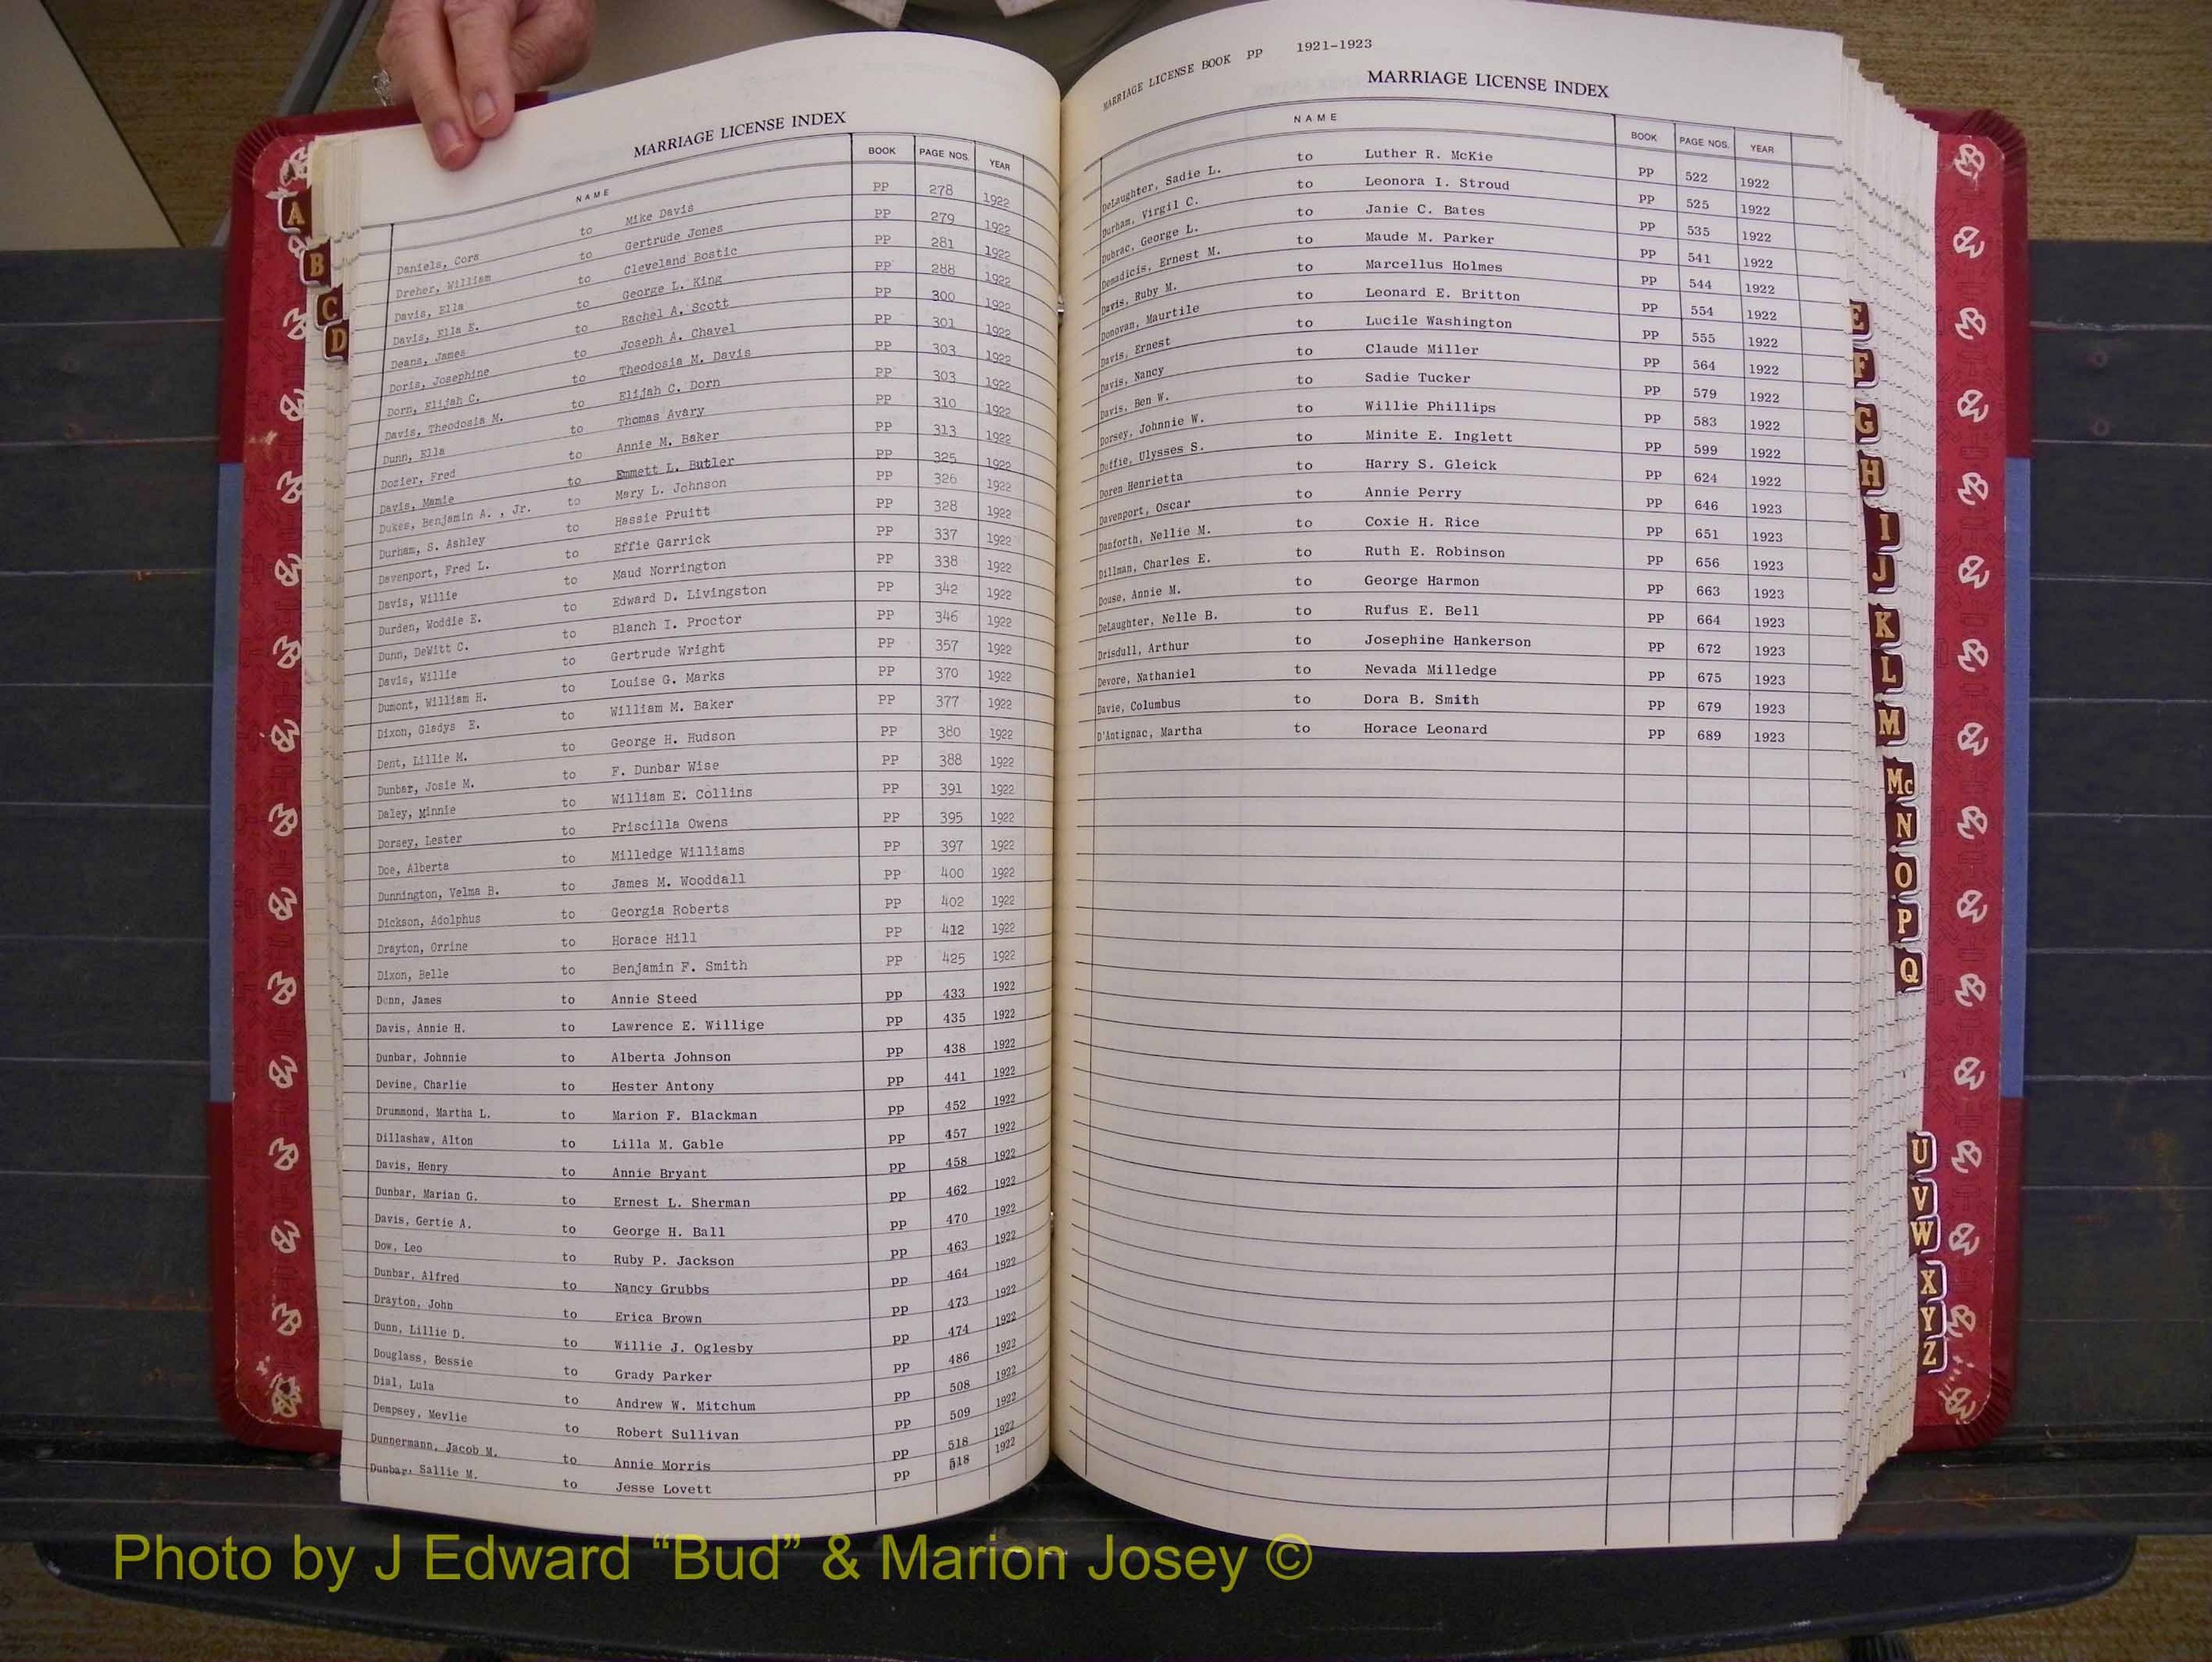 MARRIAGE LICENSE INDEX
NAME BOOK PAGE NOS. YEAR
Daniels, Cora to Mike Davis PP 278 1922
Dreher, William to Gertrude Jones PP 279 1922
Davis, Ella to Cleveland Bostic PP 281 1922
Davis, Ella E. to George L. King PP 288 1922
Deans, James to Rachel A. Scott PP 300 1922
Doris, Josephine to Joseph A. Chavel PP 301 1922
Dorn, Elijah C. to Theodosia M. Davis PP 303 1922
Davis, Theodosia M. to Elijah C. Dorn PP 303 1922
Dunn, Ella to Thomas Avary PP 310 1922
Dozier, Fred to Annie M. Baker PP 313 1922
Davis, Mamie to Emmett L. Butler PP 325 1922
Dukes, Benjamin A. , Jr. to Mary L. Johnson PP 326 1922
Durham, S. Ashley to Hassie Pruitt PP 328 1922
Davenport, Fred L. to Effie Garrick PP 337 1922
Davis, Willie to Maud Norrington PP 338 1922
Durden, Woddie E. to Edward D. Livingston PP 342 1922
Dunn, DeWitt C. to Blanch I. Proctor PP 346 1922
Davis, Willie to Gertrude Wright PP 357 1922
Dumont, William H. to Louise G. Marks PP 370 1922
Dixon, Gladys E. to William M. Baker PP 377 1922
Dent, Lillie M. to George H. Hudson PP 380 1922
Dunbar, Josie M. to F. Dunbar Wise PP 388 1922
Daley, Minnie to William E. Collins PP 391 1922
Dorsey, Lester to Priscilla Owens PP 395 1922
Doe, Alberta to Milledge Williams PP 397 1922
Dunnington, Velma B. to James M. Wooddall PP 400 1922
Dickson, Adolphus to Georgia Roberts PP 402 1922
Drayton, Orrine to Horace Hill PP 412 1922
Dixon, Belle to Benjamin F. Smith PP 425 1922
Dunn, James to Annie Steed PP 433 1922
Davis, Annie H. to Lawrence E. Willige PP 435 1922
Dunbar, Johnnie to Alberta Johnson PP 438 1922
Devine, Charlie to Hester Antony PP 441 1922
Drummond, Martha L. to Marion F. Blackman PP 452 1922
Dillashaw, Alton to Lilla M. Gable PP 457 1922
Davis, Henry to Annie Bryant PP 458 1922
Dunbar, Marian G. to Ernest L. Sherman PP 462 1922
Davis, Gertie A. to George H. Ball PP 470 1922
Dow, Leo to Ruby P. Jackson PP 463 1922
Dunbar, Alfred to Nancy Grubbs PP 464 1922
Drayton, John to Erica Brown PP 473 1922
Dunn, Lillie D. to Willie J. Oglesby PP 474 1922
Douglass, Bessie to Grady Parker PP 486 1922
Dial, Lula to Andrew W. Mitchum PP 508 1922
Dempsey, Mevlie to Robert Sullivan PP 509 1922
Dunnermann, Jacob M. to Annie Morris PP 518 1922
Dunbar, Sallie M. to Jesse Lovett PP 518 1922
MARRIAGE LICENSE BOOK PP 1921-1923
MARRIAGE LICENSE INDEX
NAME BOOK PAGE NOS. YEAR
DeLaughter, Sadie L. to Luther R. McKie PP 522 1922
Durham, Virgil C. to Leonora I. Stroud PP 525 1922
Dubrac, George L. to Janie C. Bates PP 535 1922
Demadicis, Ernest M. to Maude M. Parker PP 541 1922
Davis, Ruby M. to Marcellus Holmes PP 544 1922
Donovan, Maurtile to Leonard E. Britton PP 554 1922
Davis, Ernest to Lucile Washington PP 555 1922
Davis, Nancy to Claude Miller PP 564 1922
Davis, Ben W. to Sadie Tucker PP 579 1922
Dorsey, Johnnie W. to Willie Phillips PP 583 1922
Duffie, Ulysses S. to Minite E. Inglett PP 599 1922
Doren Henrietta to Harry S. Gleick PP 624 1922
Davenport, Oscar to Annie Perry PP 646 1923
Danforth, Nellie M. to Coxie H. Rice PP 651 1923
Dillman, Charles E. to Ruth E. Robinson PP 656 1923
Douse, Annie M. to George Harmon PP 663 1923
DeLaughter, Nelle B. to Rufus E. Bell PP 664 1923
Drisdull, Arthur to Josephine Hankerson PP 672 1923
Devore, Nathaniel to Nevada Milledge PP 675 1923
Davie, Columbus to Dora B. Smith PP 679 1923
D'Antignac, Martha to Horace Leonard PP 689 1923
A
B
C
D
E
F
G
H
I
J
K
L
M
Mc
N
O
P
Q
U
V
W
X
Y
Z
Photo by J Edward “Bud” & Marion Josey ©